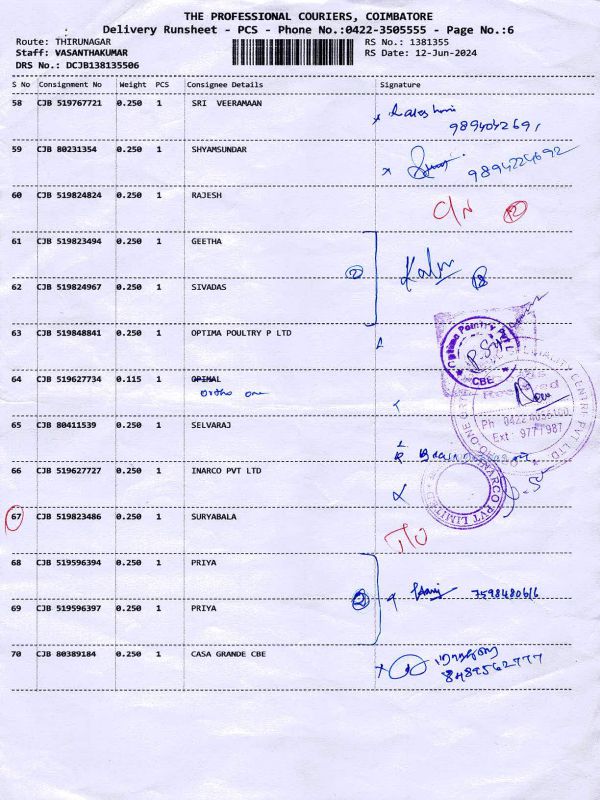 THE PROFESSIONAL COURIERS, COIMBATORE
Delivery Runsheet - PCS - Phone No.:0422-3505555 - Page No.:6
Route: THIRUNAGAR RS No.: 1381355
Staff: VASANTHAKUMAR RS Date: 12-Jun-2024
DRS No.: DCJB138135506
S No Consignment No Weight PCS Consignee Details Signature
58 CJB 519767721 0.250 1 SRI VEERAMAAN
9894042691
59 CJB 80231354 0.250 1 SHYAMSUNDAR
9894224692
60 CJB 519824824 0.250 1 RAJESH
61 CJB 519823494 0.250 1 GEETHA
2
62 CJB 519824967 0.250 1 SIVADAS
63 CJB 519848841 0.250 1 OPTIMA POULTRY P LTD
Optima Poultry Pvt L
CBE
64 CJB 519627734 0.115 1 OPIMAL
ortho one
65 CJB 80411539 0.250 1 SELVARAJ
66 CJB 519627727 0.250 1 INARCO PVT LTD
INARCO PVT LIMITED
67 CJB 519823486 0.250 1 SURYABALA
68 CJB 519596394 0.250 1 PRIYA
2 7598480616
69 CJB 519596397 0.250 1 PRIYA
70 CJB 80389184 0.250 1 CASA GRANDE CBE
8489562777